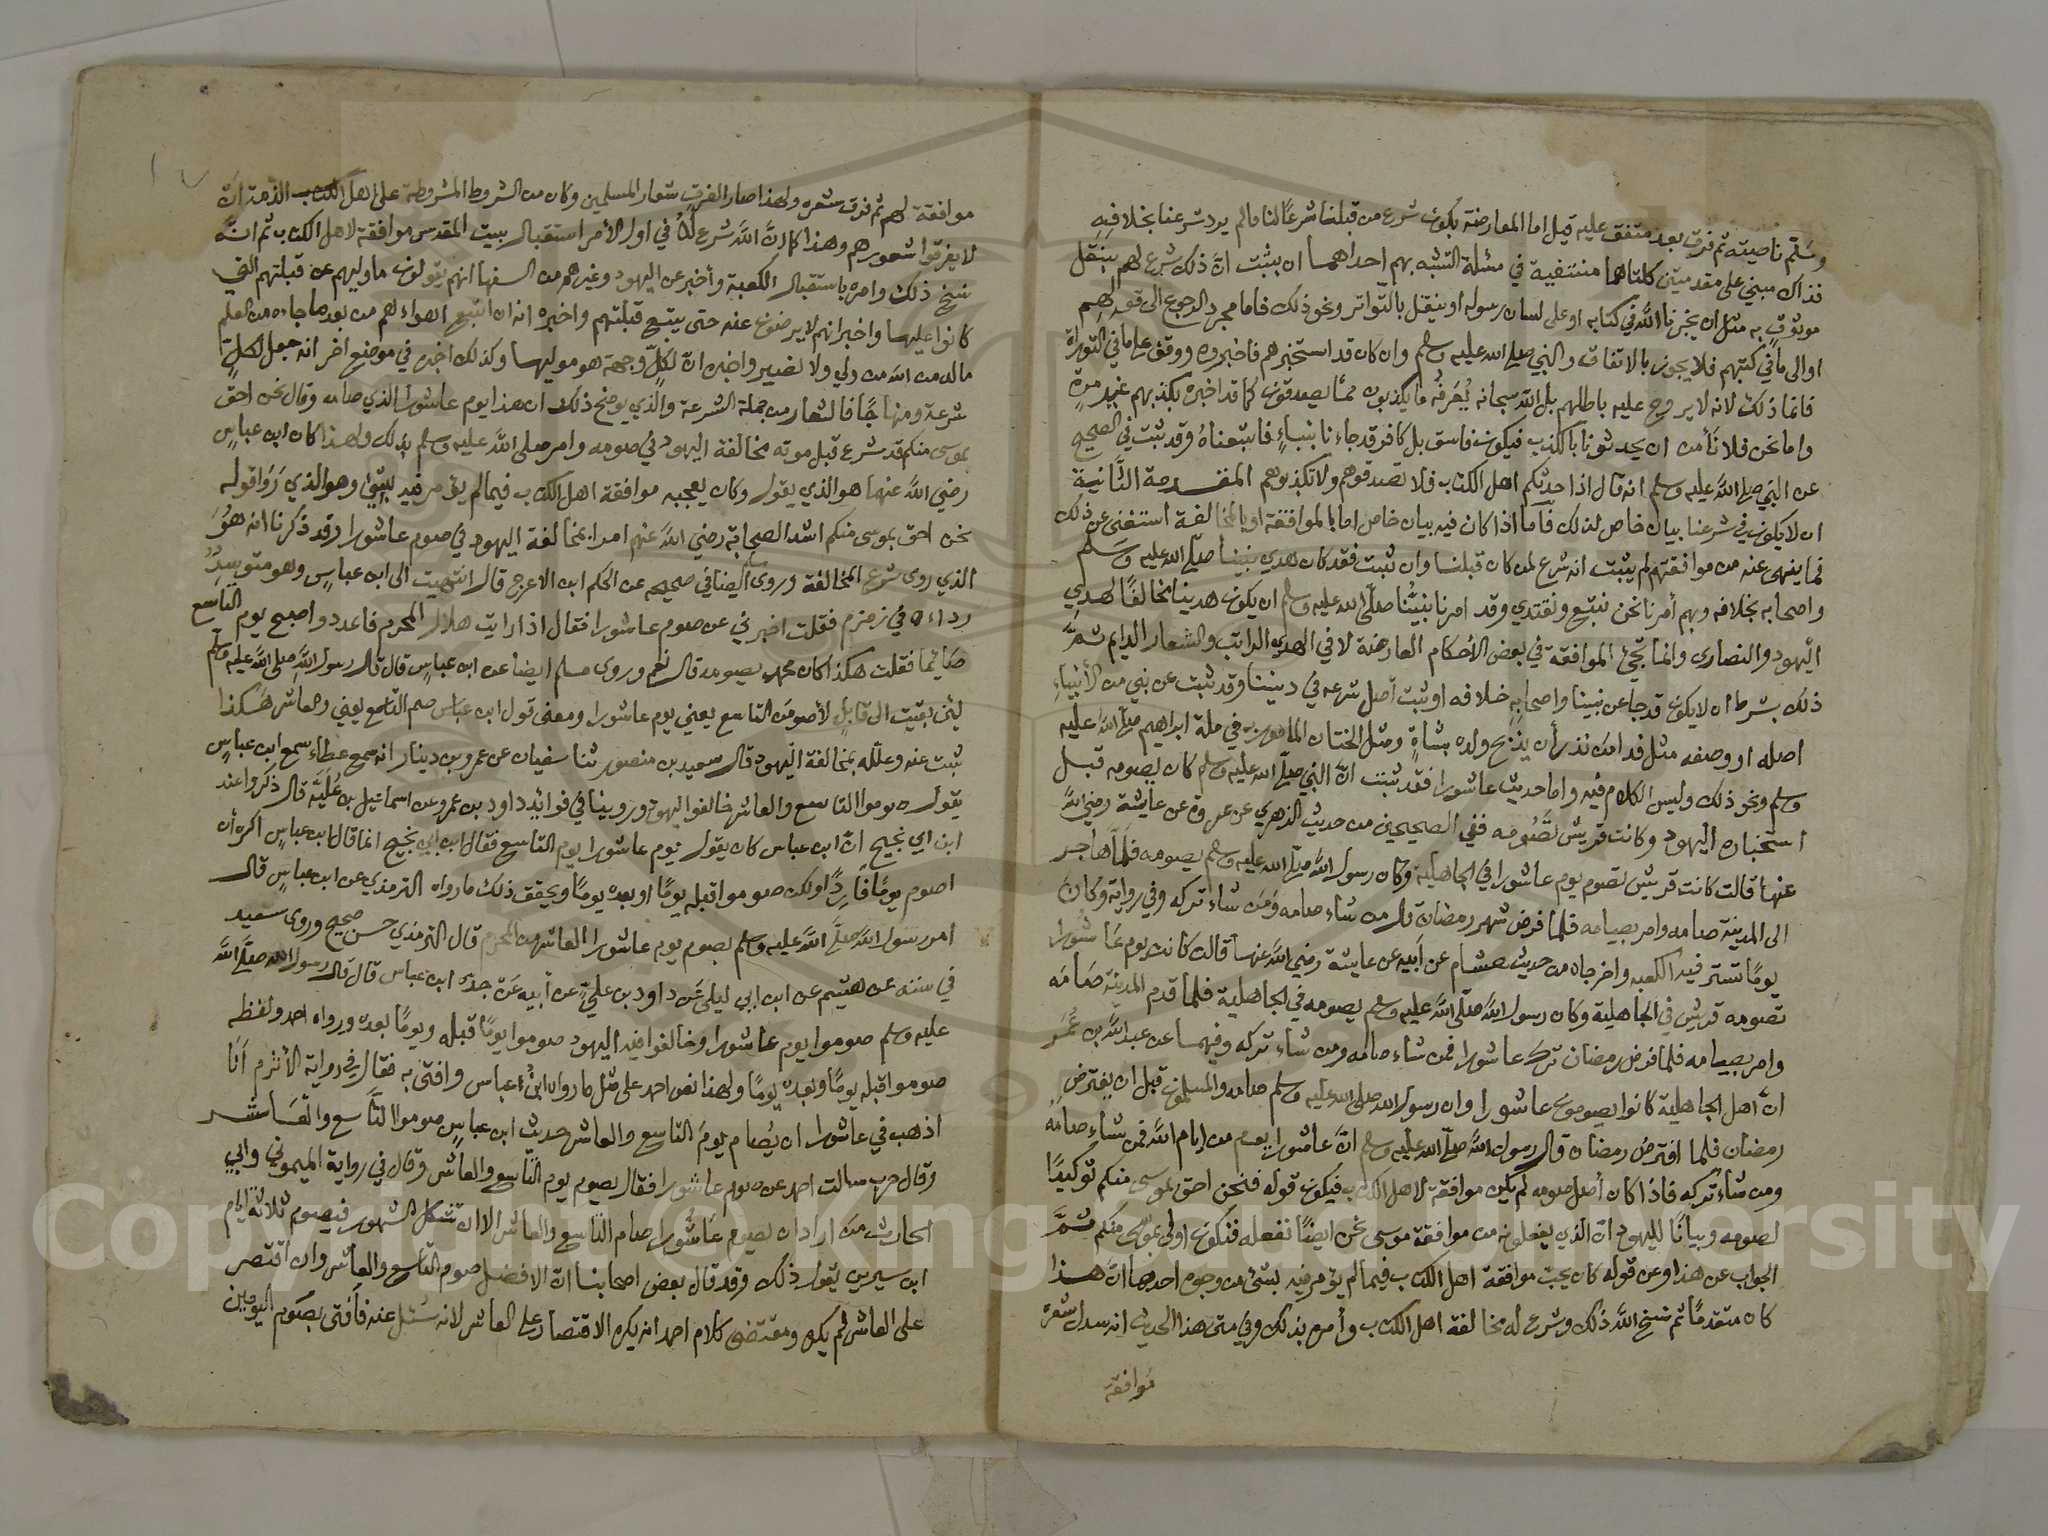 وسلم ناصيته ثم فرق بعد متفق عليه قيل اما المعارضة بكون شرع من قبلنا شرعًا لنا مالم يرد شرعنا بخلافه
فذاك مبني على مقدمتين كلتاهما منتفية في مسئلة التشبه بهم احداهما ان يثبت انّ ذلك شرع لهم بنقل
موثوقٍ به مثل ان يخبرنا الله في كتابه او على لسان رسوله او ينقل بالتواتر ونحو ذلك فاما مجرد الرجوع الى قولهم
او الى ما في كتبهم فلا يجوز بالاتفاق والنبي صلى الله عليه وسلم وان كان قد استخبرهم فاخبروه ووقف على ما في التوراة
فانما ذلك لانه لا يروج عليه باطلهم بل الله سبحانه يُعَرفُه ما يكذبون ممّا يصدقون كما قد اخبره بكذبهم غير مرةٍ
واما نحن فلا نَأمن ان يحدثونا بالكذب فيكون فاسق بل كافر قد جاءنا بنباءٍ فاتبعناهُ وقد ثبت في الصحيح
عن النبي صلى الله عليه وسلم انه قال اذا حدثكم اهل الكتاب فلا تصدقوهم ولا تكذبوهم المقدمة الثَّانية
ان لا يكون في شرعنا بيان خاص لذلك فأما اذا كان فيه بيان خاص اما بالموافقة او بالمخالفة استغنى عن ذلك
فما ينهى عنه من موافقتهم لم يثبت انه شرع لمن كان قبلنا وان ثبت فقد كان هدي نبينا صلّى الله عليه وسلم
واصحابه بخلافه وبهم أمرنا نحن نتبع ونقتدي وقد امرنا نبيُّنا صلّى الله عليه وسلم ان يكون هدينا مخالفًا لهدي
اليهود والنصارى وانما تجئ الموافقة في بعض الأحكام العارضة لا في الهدي الراتب والشعار الدايم ثمَّ
ذلك بشرط ان لا يكون قد جا عن نبينا واصحابه خلافه او ثبت أصل شرعه في ديننا وقد ثبت عن نبي من الأنبياءِ
اصله او وصفه مثل فداء من نذر أن يذبح ولده بشاةٍ ومثل الختان المامور به في ملة ابراهيم صلّى الله عليه
وسلم ونحو ذلك وليس الكلام فيه واما حديث عاشورا فقد ثبت انّ النبي صلّى الله عليه وسلم كان يصومه قبل
استخباره اليهود وكانت قريش تَصُومه ففي الصحيحين من حديث الزهري عن عروة عن عايشة رضي الله
عنها قالت كانت قريش تصوم يوم عاشورا في الجاهلية وكان رسول الله صلّى الله عليه وسلم يصومه فلمّا هاجر
الى المدينة صامه وامر بصيامه فلما فرض شهر رمضان قال من شاء صامه ومَن شاء تركه وفي رواية وكانَ
يومًا تستر فيه الكعبه واخرجاه من حديث هشام عن أبيه عن عايشة رضي الله عنها قالت كانت يوم عَاشُورا
تصومه قريش في الجاهلية وكان رسول الله صلّى الله عليه وسلم يصومه في الجاهلية فلما قدم المدينة صَامَه
وامر بصيامه فلما فرض رمضان ترك عاشورا فمن شاء صامه ومن شاء تركه وفيهما عن عبد الله بن عُمَر
انّ اهل الجاهلية كانوا يصومون عاشورا وان رسول الله صلى الله عليه وسلم صامه والمسلمون قبل ان يفترض
رمضان فلما افترضُ رمضان قال رسول الله صلّى الله عليه وسلم انَّ عاشورا يوم من ايام الله فمن شاءَ صامَهُ
ومن شاءَ تركه فاذا كان أصل صومه لم يكن موافقة لاهل الكتاب فيكون قوله فنحن احق بموسى منكم توكيدًا
لصومه وبيانًا لليهود انّ الذي يفعلونه من موافقة موسى نحن ايضًا نفعله فنكون اولى بموسى منكم ثمَّ
الجواب عن هذا وعن قوله كان يحب موافقة اهل الكتاب فيما لم يؤمر فيه بشئ من وجوه احدها انّ هذا
كان متقدمًا ثم نسخ الله ذلك وشرع له مخالفة اهل الكتاب وأمره بذلك وفي متن هذا الحديث انه سدل شعره
موافقة
موافقة لهم ثم فرق شعره ولهذا صار الفرق شعار المسلمين وكان من الشروط المشروطة على اهل الكتاب الذّمة انّ
لا يفرقوا شعورهم وهذا كما انّ الله شرع له في اول الأمر استقبال بيت المقدس موافقة لاهل الكتاب ثم انهُ
نسخ ذلك وامره باستقبال الكعبة وأخبر عن اليهود وغيرهم من السفها انهم يقولون ماوليهم عن قبلتهم التي
كانوا عليها واخبر انهم لا يرضون عنه حتى يتبع قبلتهم واخبره انه ان اتبع اهواءهم من بعد ما جاءه من العلم
ماله من الله من ولي ولا نصير واخبره ان لكلٍّ وجهة هو موليها وكذلك اخبره في موضع اخر انه جعل لكلٍ
شرعة ومنهاجًا فالشعار من جملة الشرعة والذي يوضح ذلك ان هذا يوم عاشورا الذي صامه وقال نحن احق
بموسى منكم قد شرع قبل موته مخالفة اليهود في صومه وامر صلى الله عليه وسلم بذلك ولهذا كان ابن عباسٍ
رضي الله عنهما هو الذي يقول وكان يعجبه موافقة اهل الكتاب فيما لم يؤمر فيه بشئ وهو الذي رَوَا قوله
نحن احق بموسى منكم اشد الصحابة رضي الله عنهم امرا بمخالفة اليهود في صوم عاشورا وقد ذكرنا انه هُوَ
الذي روى شرع المخالفة وروى مسلم ايضا في صحيحه عن الحكم ابن الاعرج قال انتهيت الى ابن عباسٍ وهو متوسِدٌ
رداءه في زمزم فقلت اخبرني عن صوم عاشورا فقال اذا رايت هلال المحرم فاعدد واصبح يوم التاسع
صائما فقلت هكذا كان محمد يصومه قال نعم وروى مسلم ايضا عن ابن عباسٍ قال قال رسول الله صلى الله عليه وسلم
لئن بقيت الى قابلٍ لأصومَن التاسع يعني يوم عاشورا ومعنى قول ابن عباس صم التاسع يعني والعاشر هكذا
ثبت عنه وعلّله بمخالفة اليهود قال سعيد بن منصور ثنا سفيان عن عمرو بن دينار انه سمع عطاء سمع ابن عباسٍ
يقول صوموا التاسع والعاشر خالفوا اليهود وروينا في فوائد داود بن عمرو عن اسماعيل بن عُلَيَّه قال ذكروا عند
ابن ابي نجيح انّ ابن عباس كان يقول يوم عاشورا يوم التاسع فقال ابن ابي نجيح انما قال ابن عباسٍ اكره أن
اصوم يومًا فاردًا ولكن صوموا قبله يومًا او بعده يومًا ويحقق ذلك ما رواه الترمذي عن ابن عباسٍ قال
امر رسول الله صلّى الله عليه وسلم بصوم يوم عاشورا العاشر من المحرم قال الترمذي حسن صحيح وروى سعيد
في سننه عن هشيم عن ابن ابي ليلى عَن داود بن عليّ عن أبيه عَن جدّه ابن عباس قال قال رسول الله صلّى الله
عليه وسلم صوموا يوم عاشورا وخالفوا فيه اليهود صوموا يومًا قبله ويومًا بعده ورواه احمد ولفظه
صوموا قبله يومًا وبعده يومًا ولهذا نص احمد على مثل ما رواه ابن عباس وافتى به فقال في رواية الأثرم أنا
اذهب في عاشورا ان يُصام يومَ التاسع والعاشر حديث ابن عباسٍ صوموا التَّاسع والعَاشر
وقال حرب سالت احمد عن صوم عاشورا فقال يصوم يوم التّاسع والعاشر وقال في رواية الميموني وابي
الحارث من اراد ان يصوم عاشُورا صام التّاسع والعاشر الا ان تشكل الشهور فيصوم ثلاثة ايام
ابن سيرين يقول ذلك وقد قال بعض اصحابنا انّ الافضل صوم التاسع والعاشر وان اقتصر
على العاشر لم يكره ومقتضى كلام احمد انه يكره الاقتصار على العاشر لانه سُئل عنه فأفتى بصَوم اليومين
Copyright © King Saud University